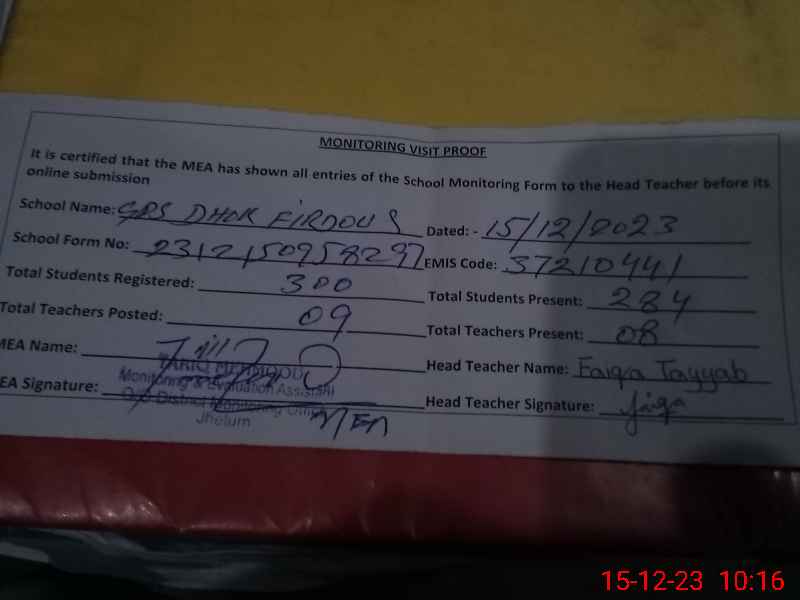 MONITORING VISIT PROOF
It is certified that the MEA has shown all entries of the School Monitoring Form to the Head Teacher before its
online submission
School Name: GPS DHOK FIRDOUS Dated: - 15/12/2023
School Form No: 2312150958297 EMIS Code: 37210441
Total Students Registered: 300 Total Students Present: 284
Total Teachers Posted: 09 Total Teachers Present: 08
MEA Name: Head Teacher Name: Faiqa Tayyab
TARIQ MEHMOOD
Monitoring & Evaluation Assistant
EA Signature: Head Teacher Signature: faiqa
District Monitoring Officer
Jhelum
MEA
15-12-23 10:16